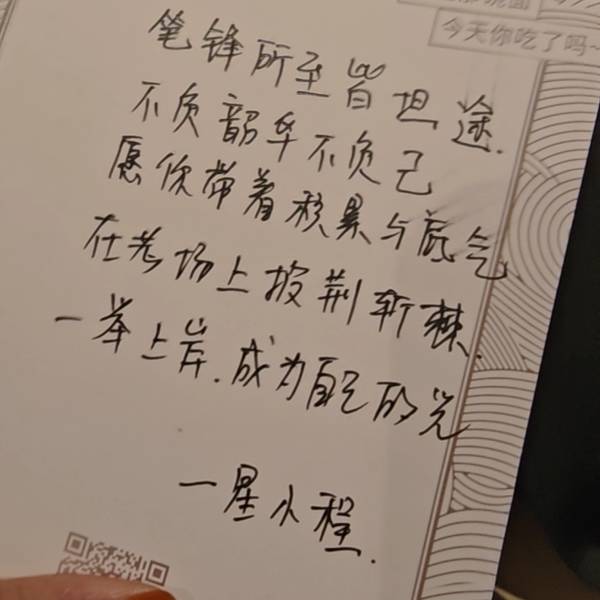 今天你吃了吗~
笔锋所至皆坦途.
不负韶华不负己
愿你带着积累与底气
在考场上披荆斩棘.
一举上岸.成为自己的光
一星小程.